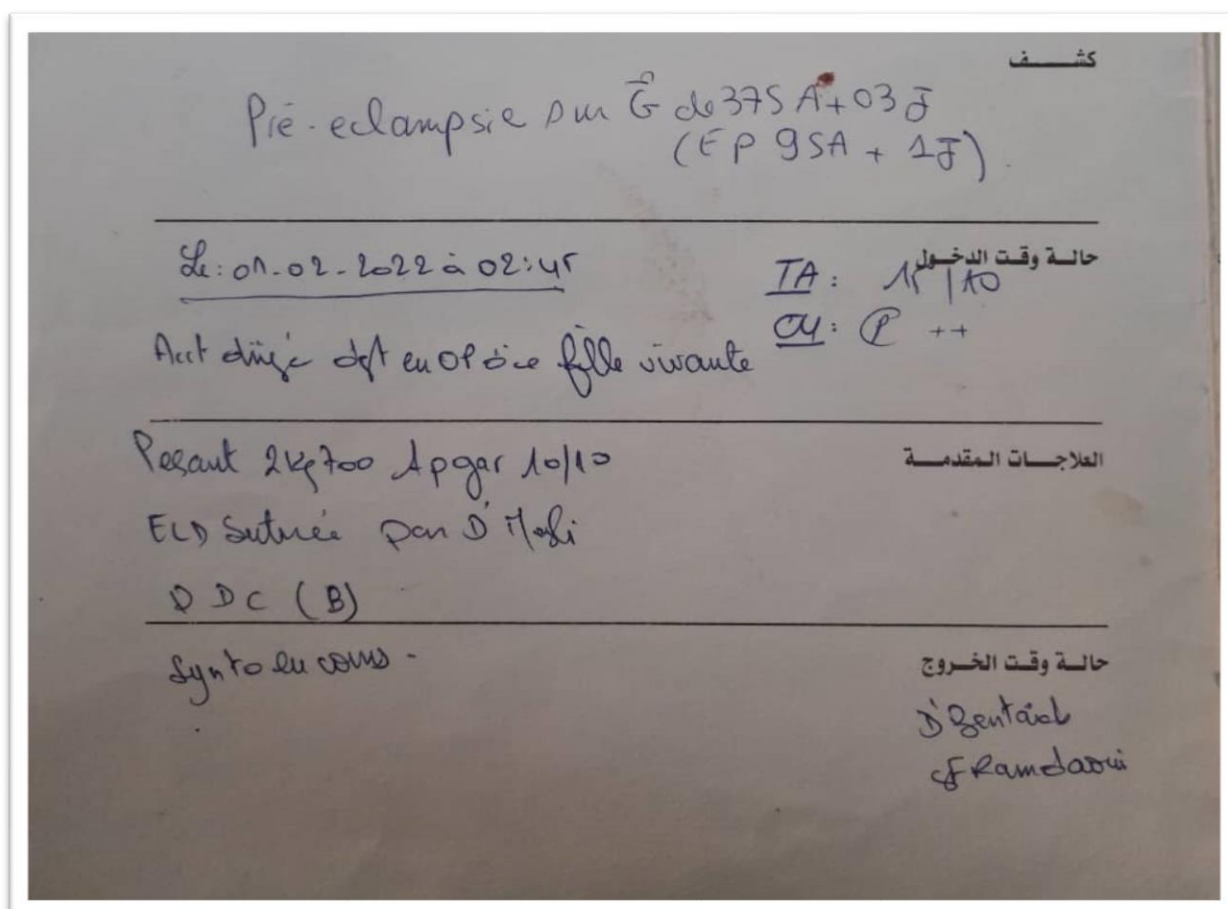 كشف
Pré-eclampsie sur G de 37SA+03J
(EP 9SA + 1J).
حالة وقت الدخول
Le: 01-02-2022 à 02:45
TA: 15/10
: P ++
Acct dirigé dgt en OP d'une fille vivante
العلاجات المقدمة
Pesant 2kg700 Apgar 10/10
suturée par D'
DDC (B)
حالة وقت الخروج
Synto en cours -
D' Bentaieb
Ramdaoui